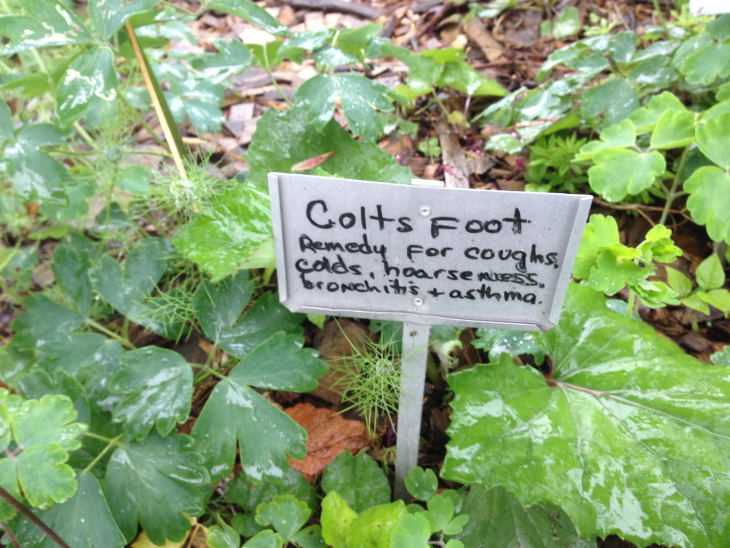 Colts Foot
Remedy for coughs,
colds, hoarseness,
bronchitis + asthma.